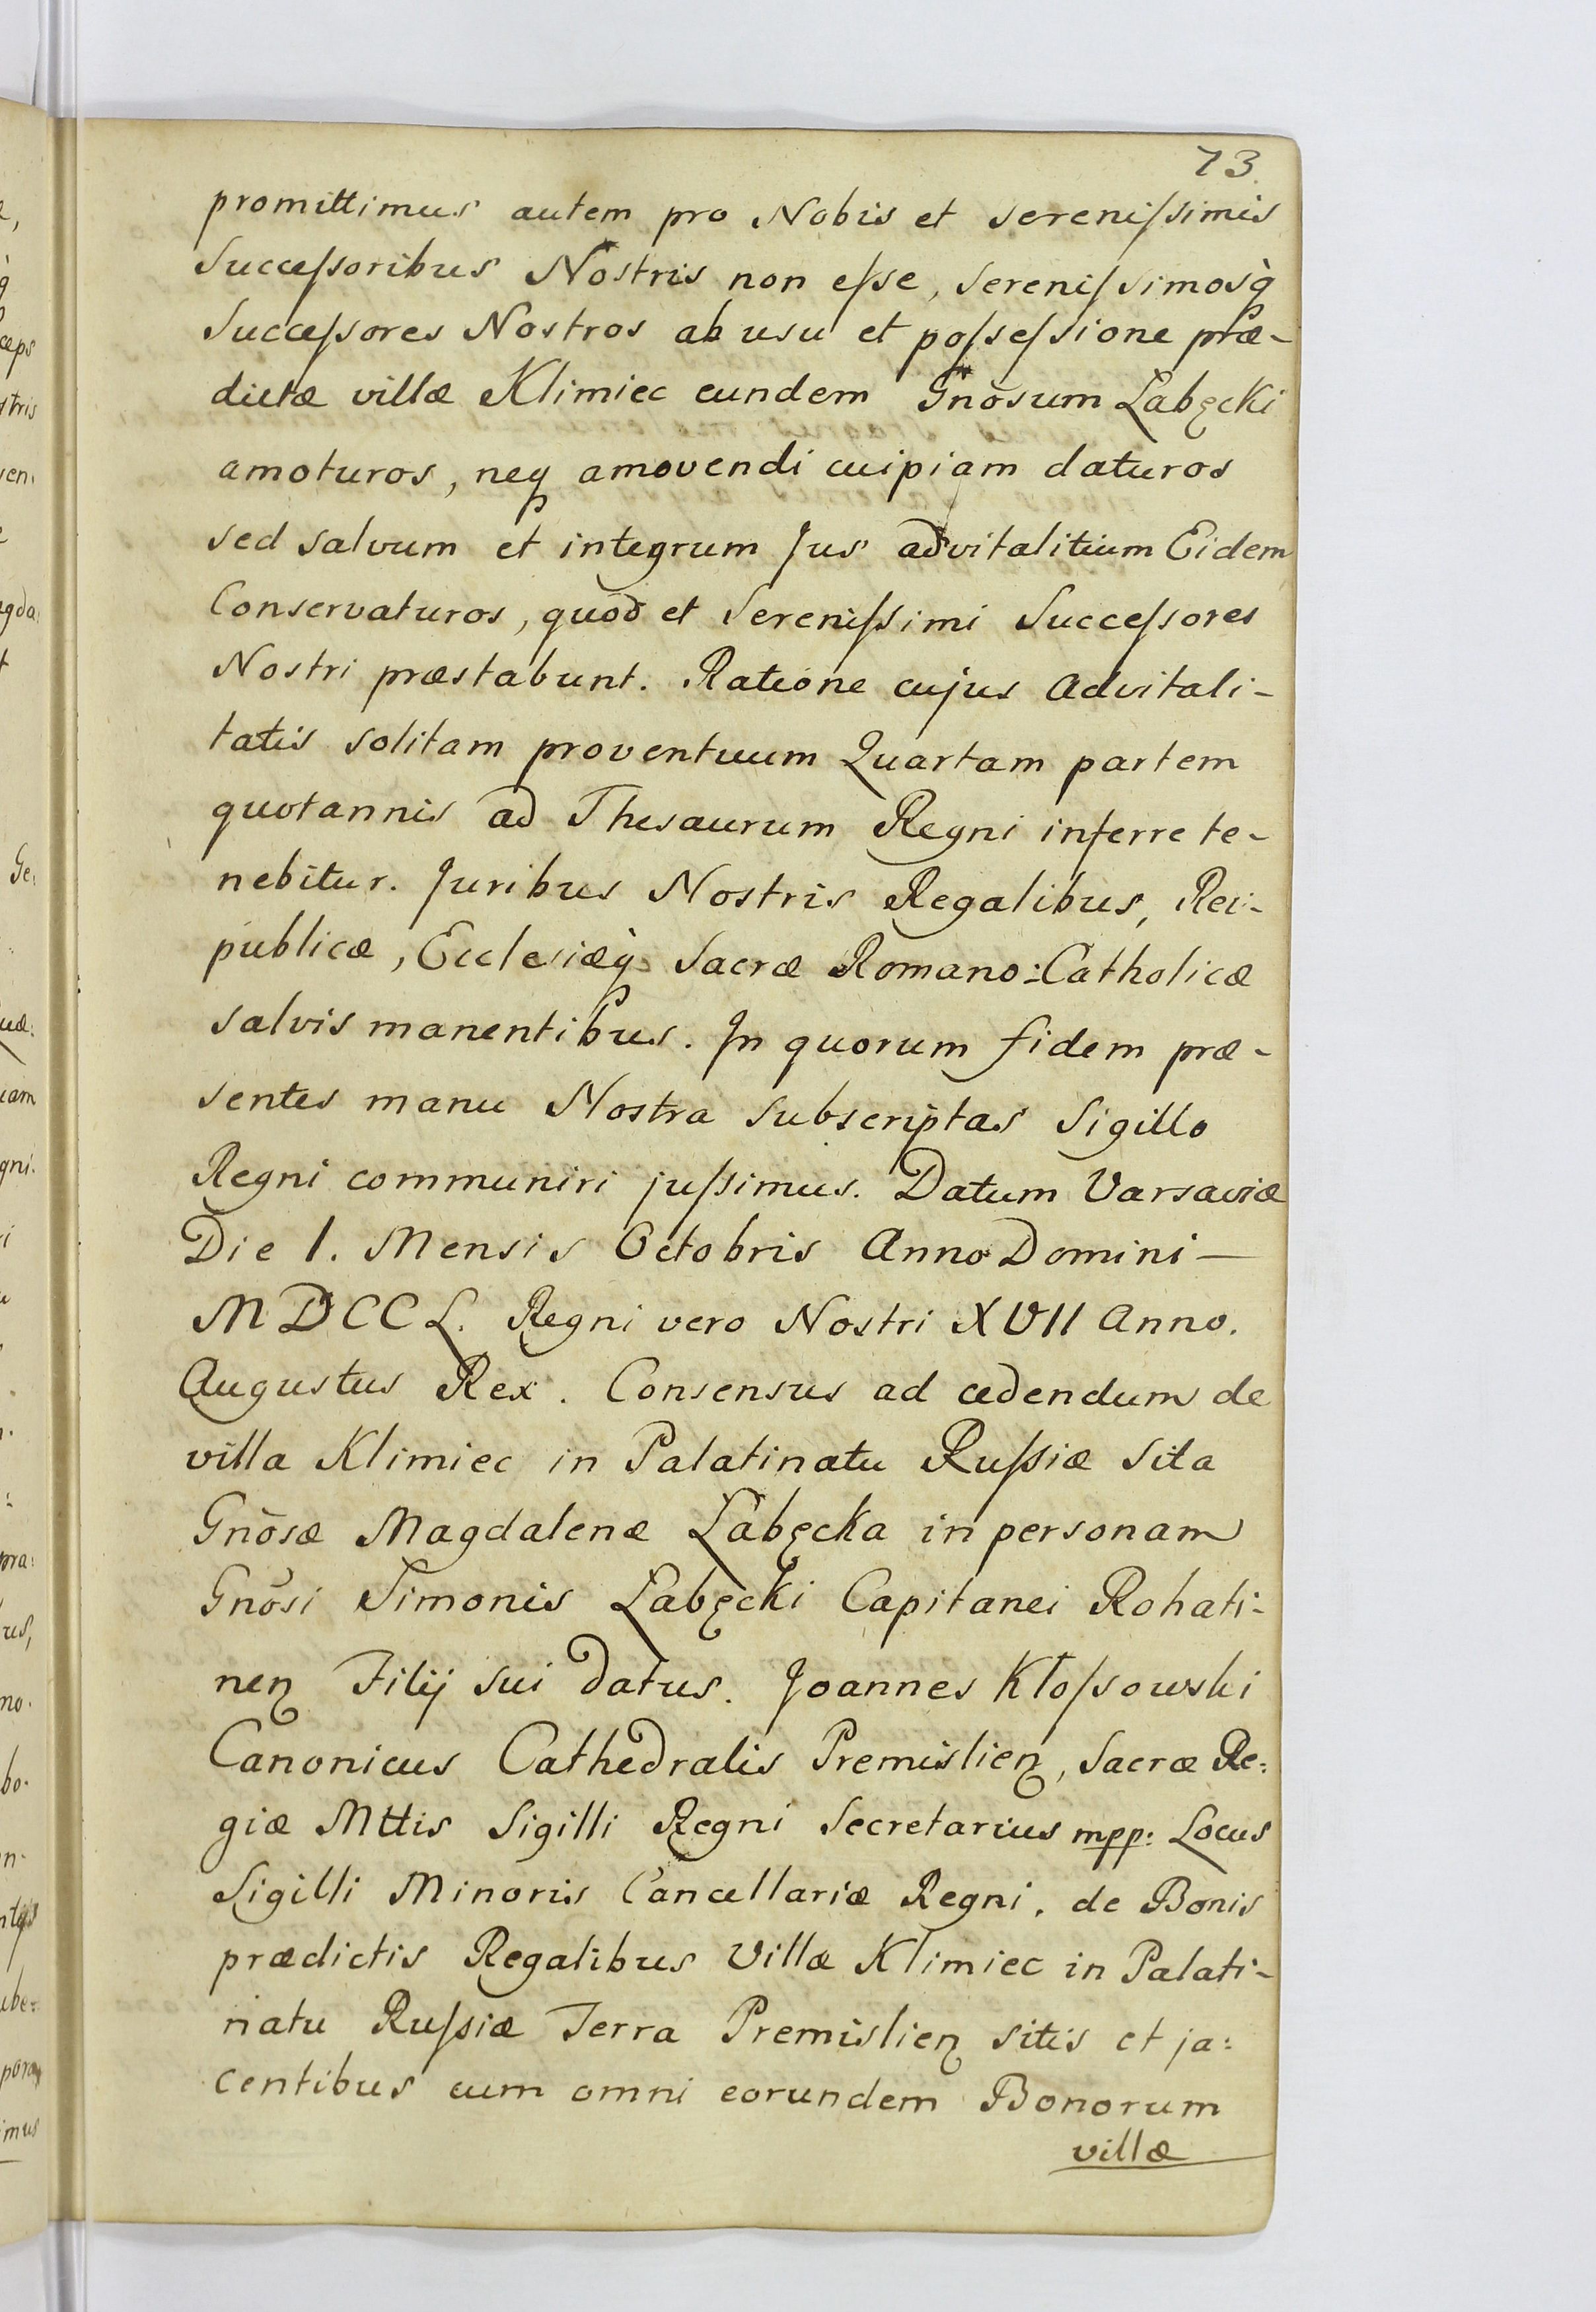 73
promittimus autem pro Nobis et Sereniſsimis
Succeſsoribus Nostris non eſse, Sereniſsimosq̀
Succeſsores Nostros ab usu et poſseſsione præ-
dictæ villæ Klimiec eundem Gnõsum Łabęcki
amoturos, neq amovendi cuipiam daturos
sed salvum et integrum Jus advitalitium Eidem
Conservaturos, quod et Sereniſsimi Succeſsores
Nostri præstabunt. Ratione cujus Advitali-
tatis solitam proventuum Quartam partem
quotannis ad Thesaurum Regni inferre te-
nebitur. Juribus Nostris Regalibus, Rei-
publicæ, Ecclesiæq̀ Sacræ Romano-Catholicæ
salvis manentibus. In quorum fidem præ-
sentes manu Nostra Subscriptas Sigillo
Regni communiri juſsimus. Datum Varsaviæ
Die 1. Mensis Octobris Anno Domini —
MDCCL. Regni vero Nostri XVII Anno.
Augustus Rex. Consensus ad cedendum de
villa Klimiec in Palatinatu Ruſsiæ Sita
Gnõsæ Magdalenæ Łabęcka in personam
Gnõsi Simonis Łabęcki Capitanei Rohati-
nen Filij sui datus. Joannes Kłoſsowski
Canonicus Cathedralis Premislien, Sacræ Re:
giæ Mttis Sigilli Regni Secretarius mpp: Locus
Sigilli Minoris Cancellariæ Regni. de Bonis
prædictis Regalibus Villæ Klimiec in Palati-
natu Ruſsiæ Terra Premislien sitis et ja:
centibus cum omni eorundem Bonorum
villæ